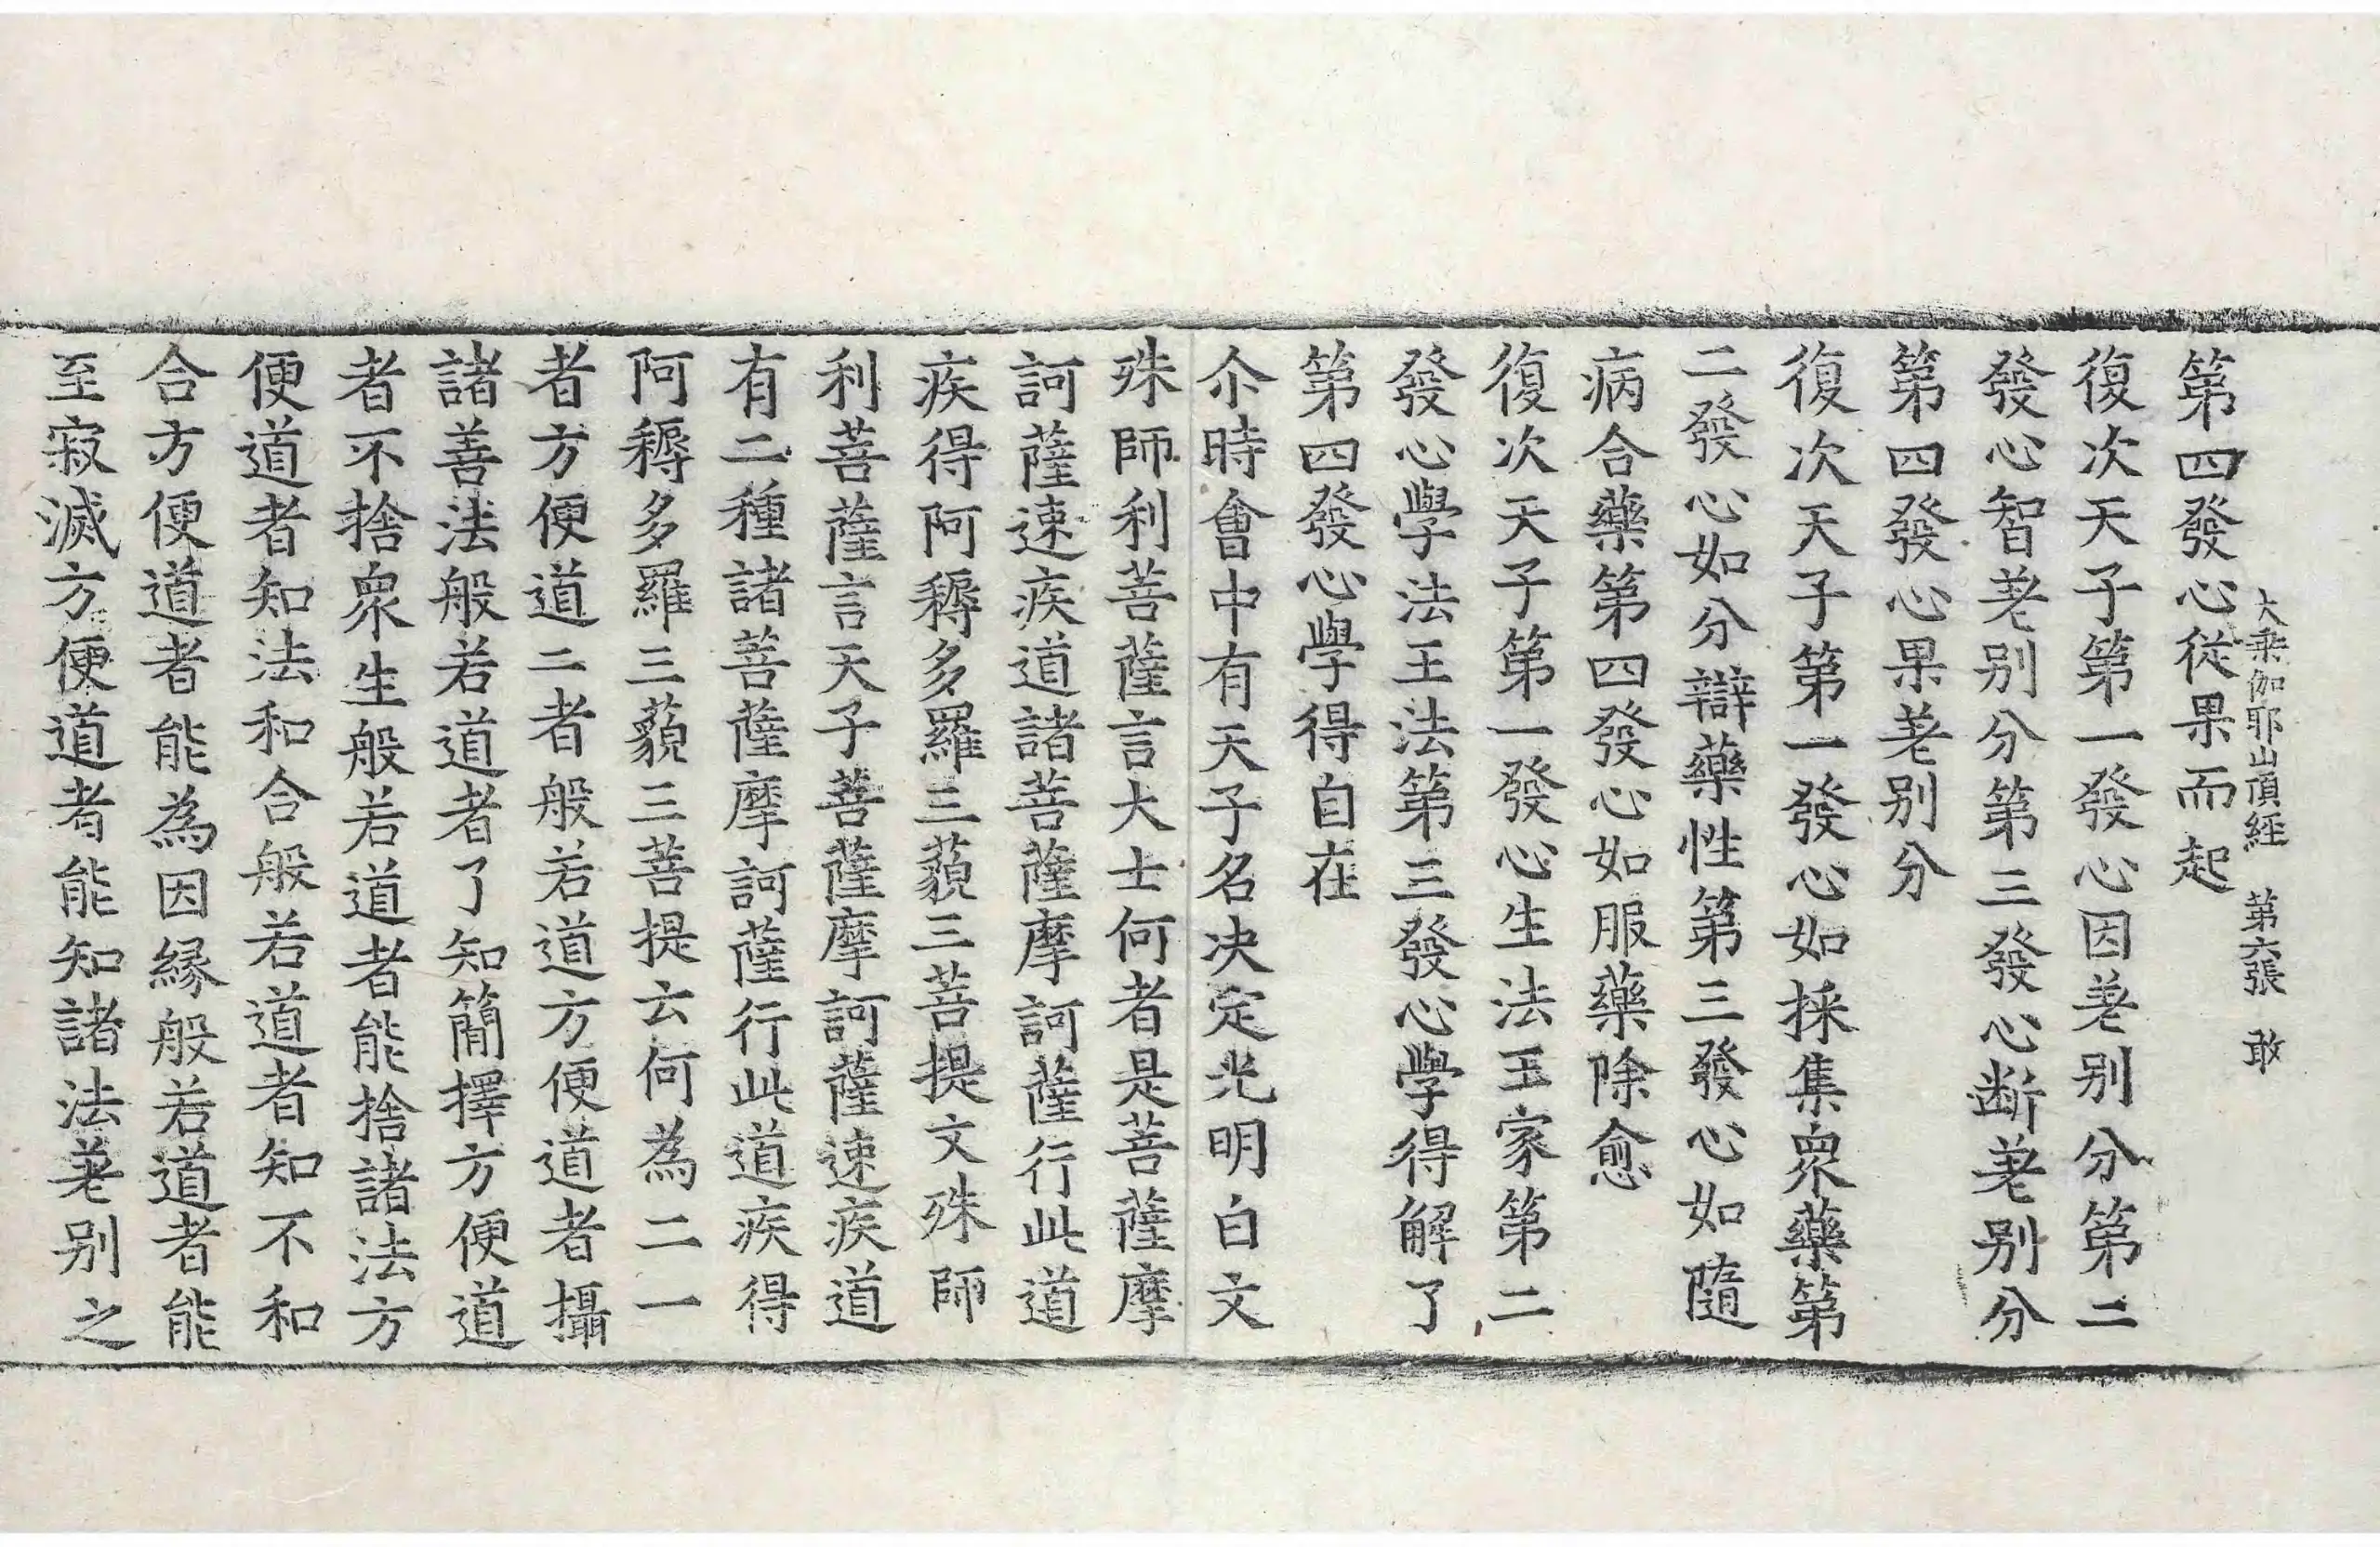 大乘伽耶山頂經　第六張　敢
第四發心從果而起
復次天子第一發心因差别分第二
發心智差别分第三發心断差别分
第四發心果差别分
復次天子第一發心如採集衆藥第
二發心如分辯藥性第三發心如隨
病合藥第四發心如服藥除愈
復次天子第一發心生法王家第二
發心學法王法第三發心學得解了
第四發心學得自在
尒時會中有天子名决定光明白文
殊師利菩薩言大士何者是菩薩摩
訶薩速疾道諸菩薩摩訶薩行此道
疾得阿耨多羅三藐三菩提文殊師
利菩薩言天子菩薩摩訶薩速疾道
有二種諸菩薩摩訶薩行此道疾得
阿耨多羅三藐三菩提云何為二一
者方便道二者般若道方便道者攝
諸善法般若道者了知簡擇方便道
者不捨衆生般若道者能捨諸法方
便道者知法和合般若道者知不和
合方便道者能為因縁般若道者能
至寂滅方便道者能知諸法差别之